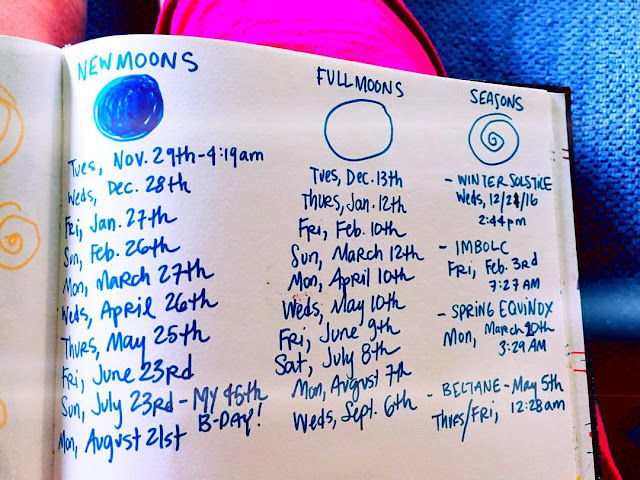 NEW MOONS
Tues, Nov. 29th - 4:19am
Weds, Dec. 28th
Fri, Jan. 27th
Sun, Feb. 26th
Mon, March 27th
Weds, April 26th
Thurs, May 25th
Fri, June 23rd
Sun, July 23rd - MY 45th
B-DAY!
Mon, August 21st
FULL MOONS
Tues, Dec. 13th
Thurs, Jan. 12th
Fri, Feb. 10th
Sun, March 12th
Mon, April 10th
Weds, May 10th
Fri, June 9th
Sat, July 8th
Mon, August 7th
Weds, Sept. 6th
SEASONS
- WINTER SOLSTICE
Weds, 12/21/16
2:44pm
- IMBOLC
Fri, Feb. 3rd
7:27 AM
- SPRING EQUINOX
Mon, March 20th
3:29 AM
- BELTANE - May 5th
Thurs/Fri, 12:28am